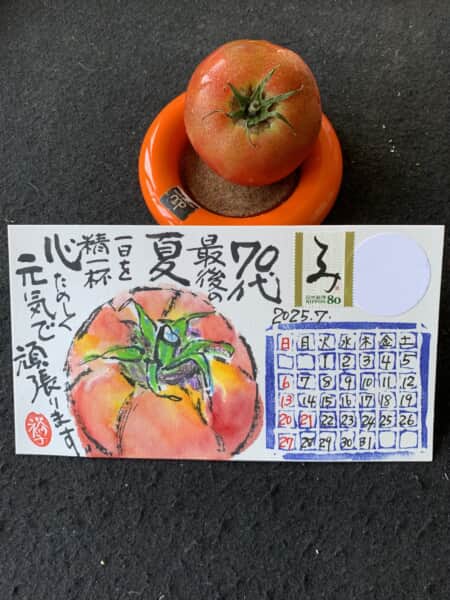 70代
最後の
夏
一日を
精一杯
心たのしく
元気で
頑張ります
み
日本郵便
NIPPON 80
2025.7.
日 月 火 水 木 金 土
1 2 3 4 5
6 7 8 9 10 11 12
13 14 15 16 17 18 19
20 21 22 23 24 25 26
27 28 29 30 31